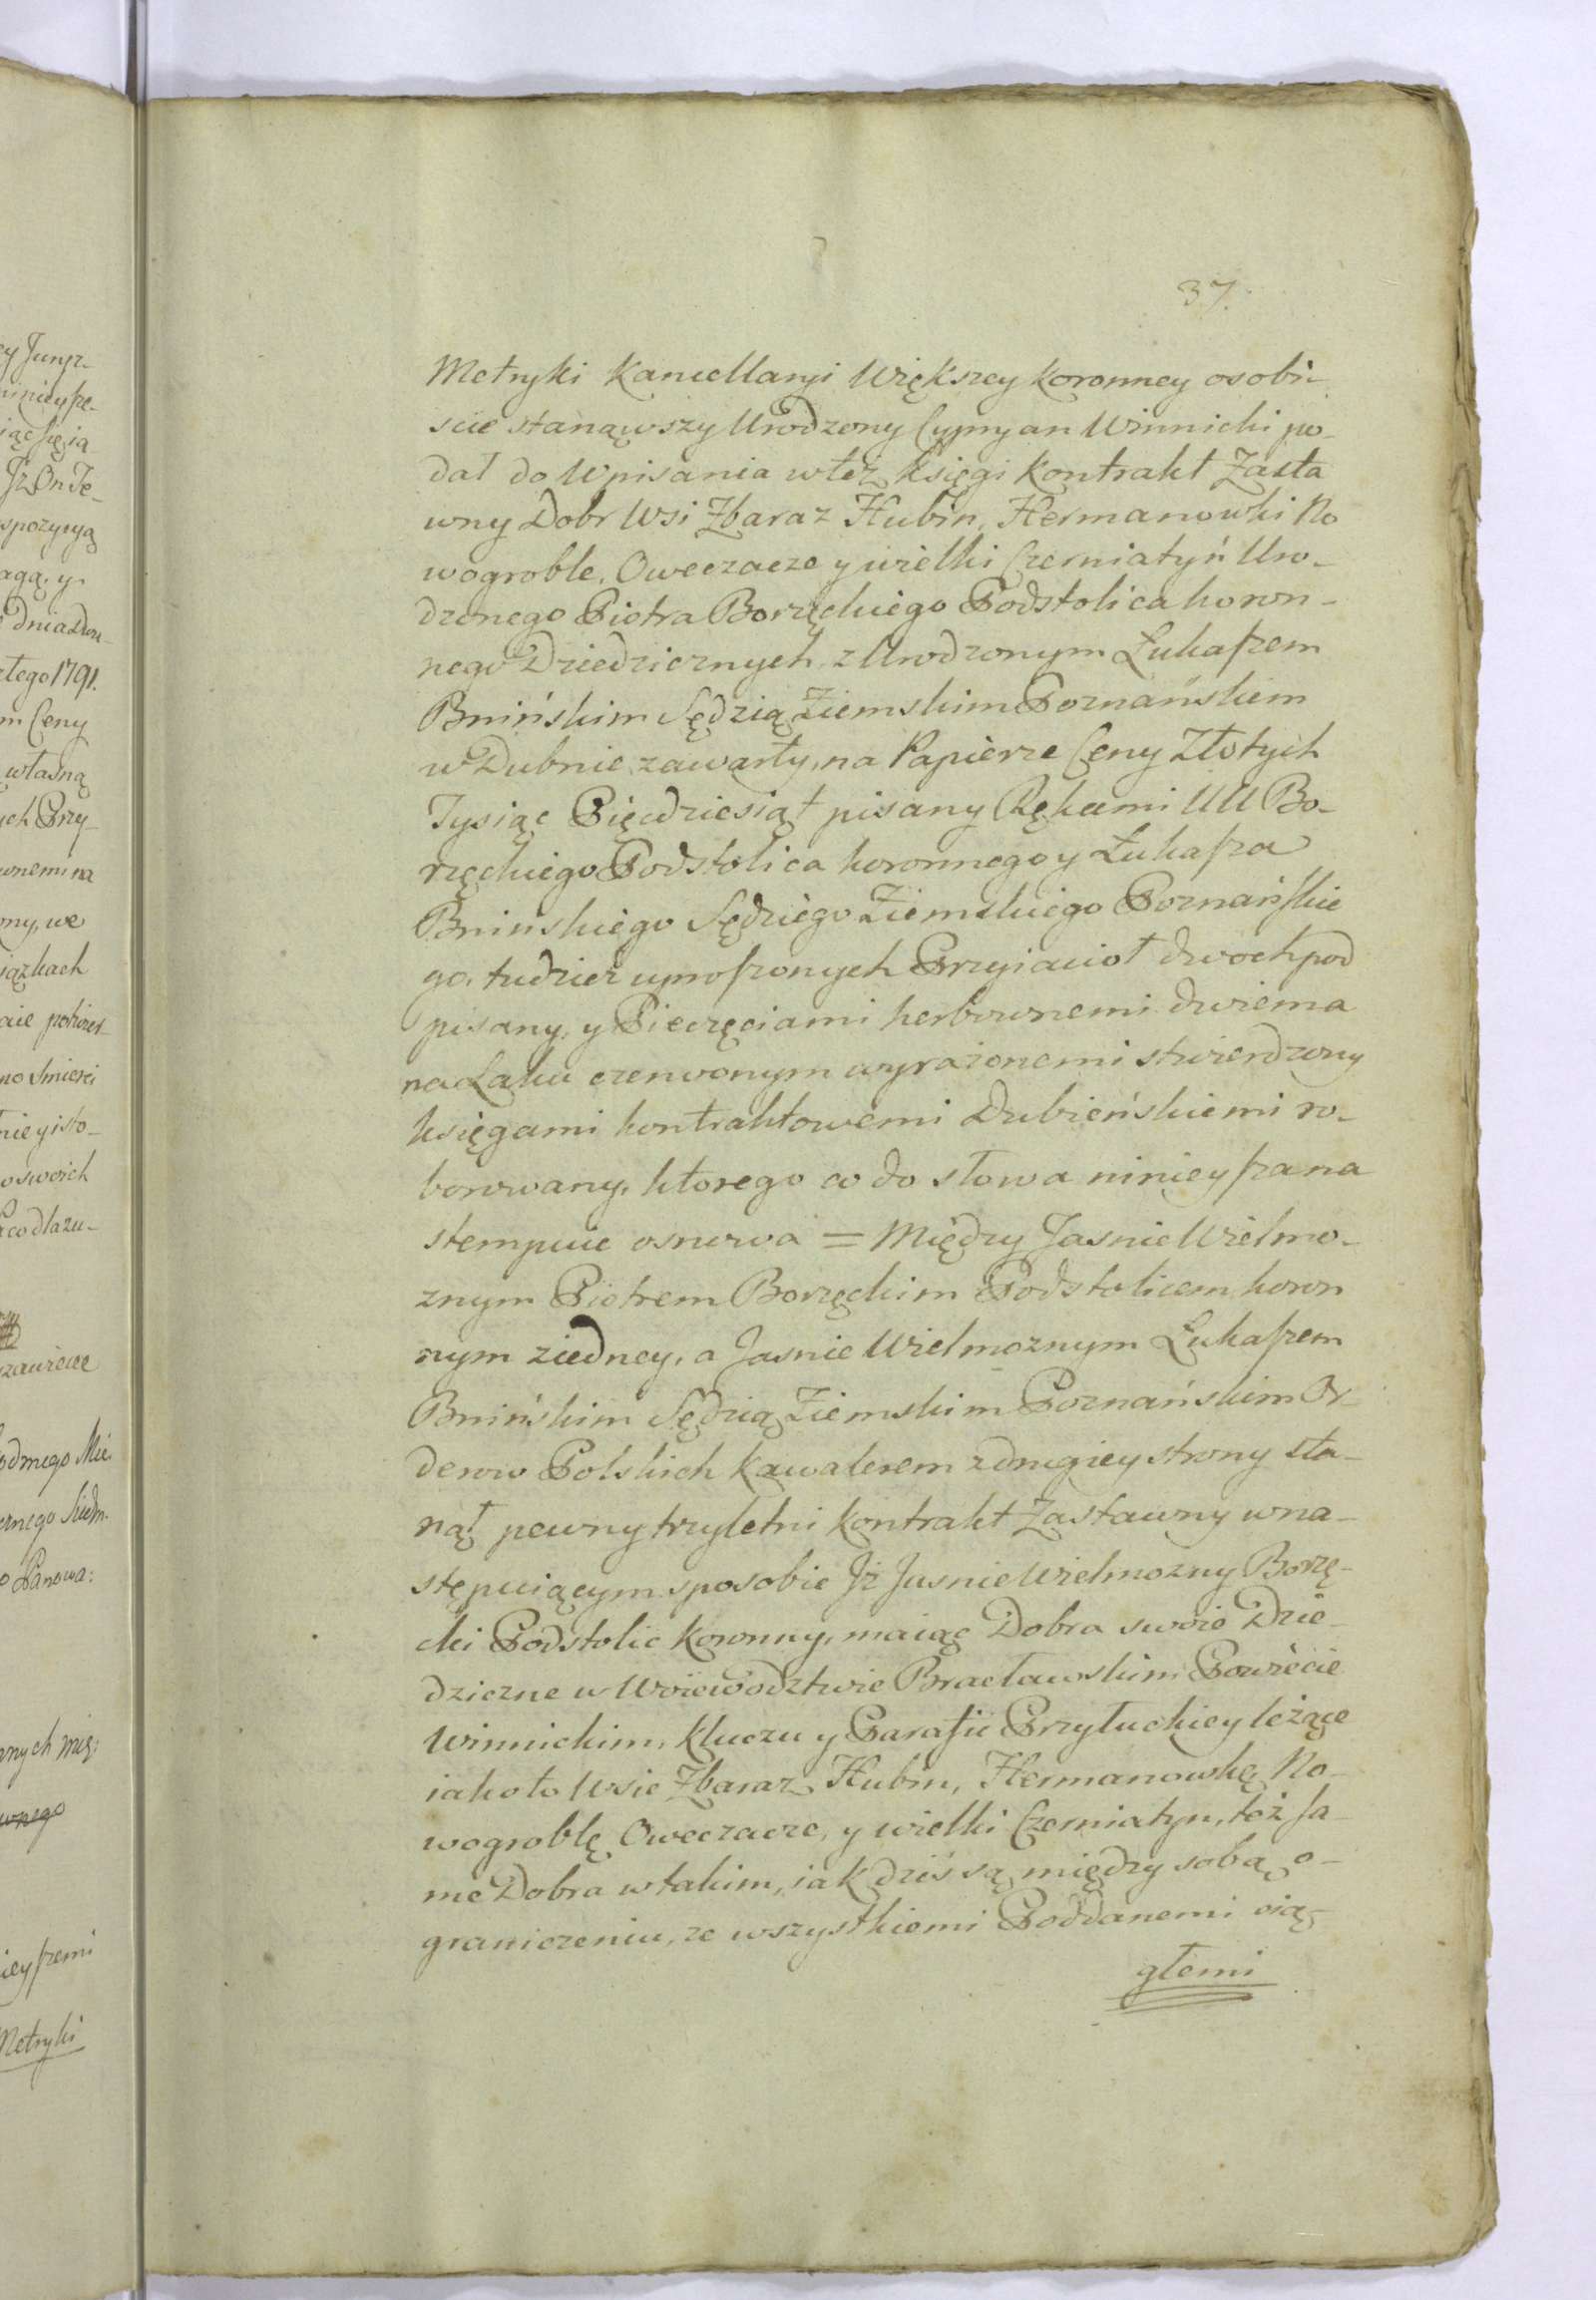 37.
Metryki Kancellaryi Większey Koronney osobi-
ście stanąwszy Urodzony Cypryan Winnicki po-
dał do Wpisania wteż Księgi Kontrakt Zasta
wny Dobr Wsi Zbaraz Hubin, Hermanowki No
wogroble, Oweczacze y wielki Czerniatyń Uro-
dzonego Piotra Borzęckiego Podstolica koron-
nego Dziedzicznych z Urodzonym Łukaszem
Bnińskim Sędzią Ziemskim Poznańskiem
w Dubnie zawarty, na Papierze Ceny Złotych
Tysiąc Pięćdziesiąt pisany Rękami UU Bo-
rzęckiego Podstolica koronnego y Łukasza
Bninskiego Sędziego Ziemskiego Poznańskie
go, tudzież uproszonych Przyiacioł dwoch pod
pisany, y Pieczęciami herbownemi dwiema
na Laku czerwonym wyrażonemi stwierdzony
księgami kontraktowemi Dubieńskiemi ro-
borowany, ktorego co do słowa ninieysza na
stempuie osnowa = Między Jasnie Wielmo-
znym Piotrem Borzęckim Podstolicem koron
nym ziedney, a Jasnie Wielmoznym Łukaszem
Bnińskim Sędzią Ziemskim Poznańskim Or-
derow Polskich Kawalerem z drugiey strony sta-
nął pewny trzyletni Kontrakt Zastawny wna-
stępuiącym sposobie Iż Jasnie Wielmozny Borzę-
cki Podstolic Koronny, maiąc Dobra swoie Dzie-
dziczne w Woiewodztwie Bracławskim Powiecie
Winnickim, Kluczu y Parafii Przyłuckiey leżące
iako to Wsie Zbaraz, Hubin, Hermanowkę, No-
wogroblę Oweczacze, y wielki Czerniatyn, też sa-
me Dobra w takim, iak dziś są między sobą o-
graniczeniu, ze wszystkiemi Poddanemi cią-
głemi